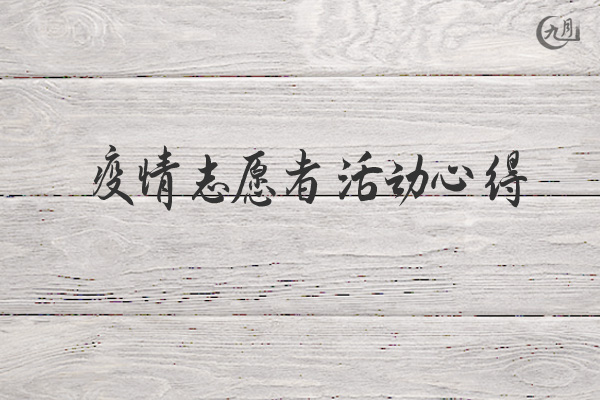 九月
疫情志愿者活动心得